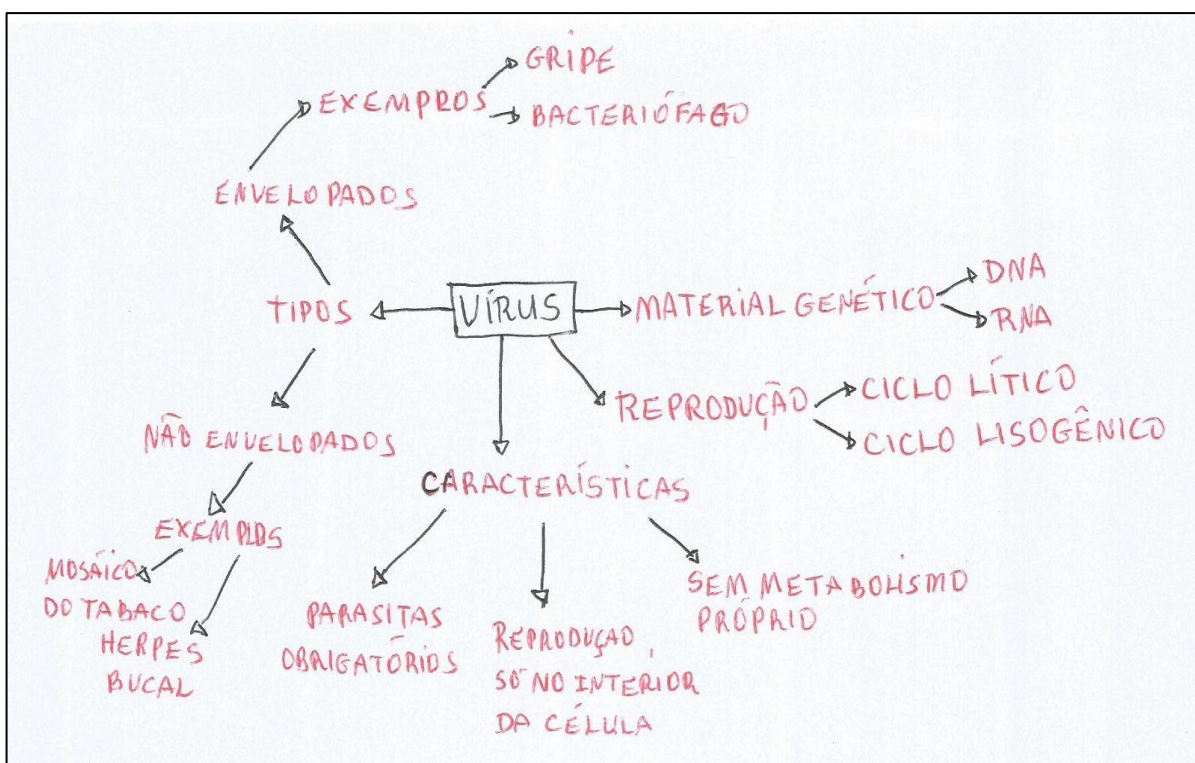 GRIPE
EXEMPROS
BACTERIÓFAGO
ENVELOPADOS
TIPOS
VÍRUS
MATERIAL GENÉTICO
DNA
RNA
REPRODUÇÃO
CICLO LÍTICO
CICLO LISOGÊNICO
NÃO ENVELOPADOS
EXEMPLOS
MOSÁICO
DO TABACO
HERPES
BUCAL
CARACTERÍSTICAS
PARASITAS
OBRIGATÓRIOS
REPRODUÇAO
SÓ NO INTERIOR
DA CÉLULA
SEM METABOLISMO
PRÓPRIO